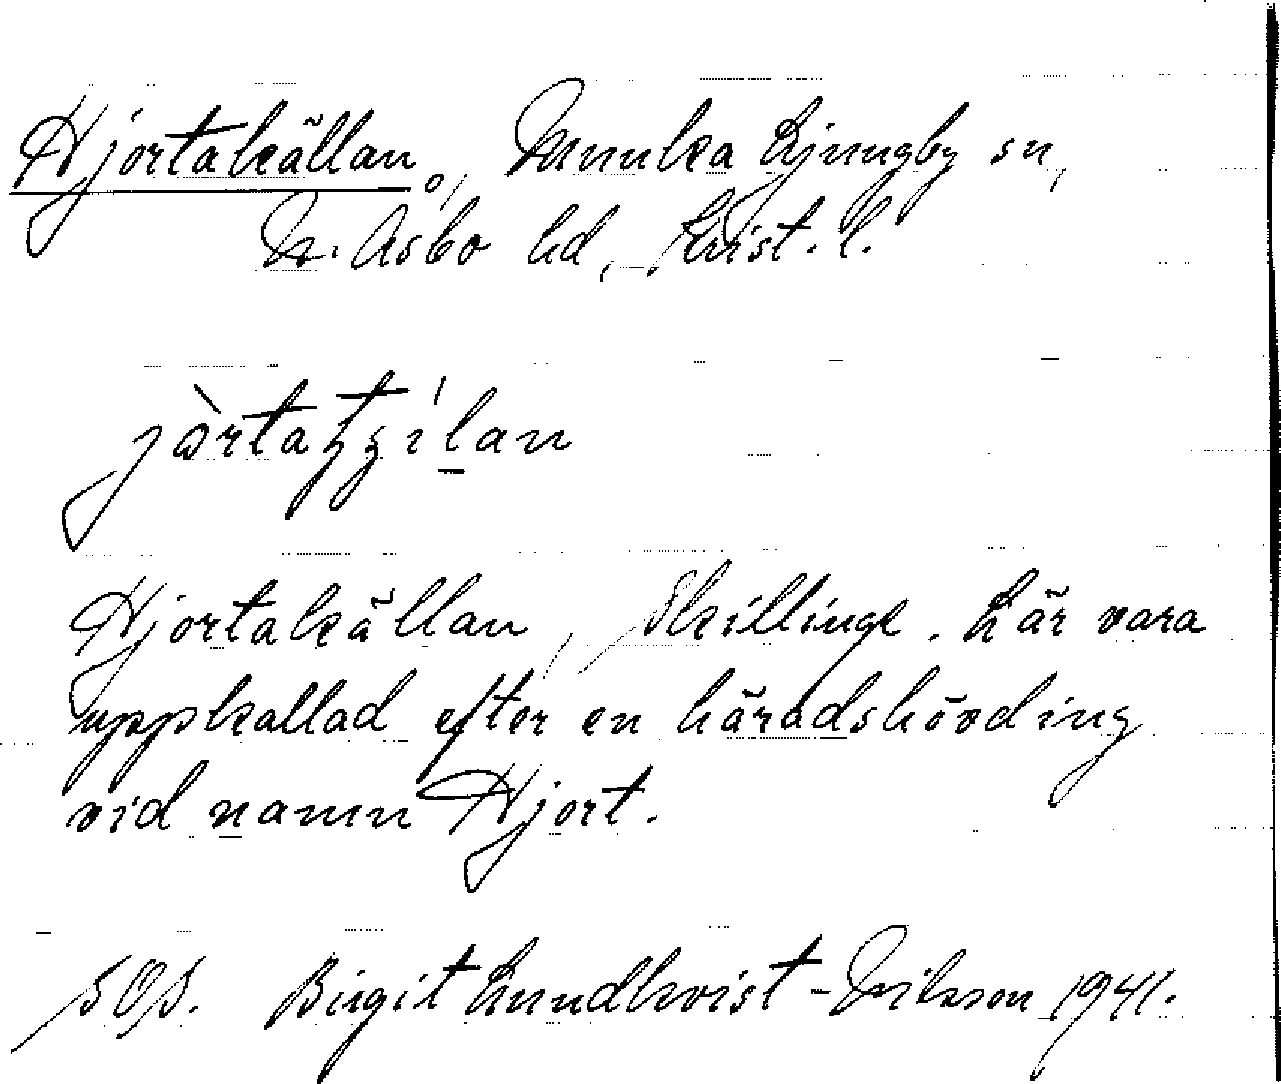 Hjortakällan, Munka Ljungby sn,
N. Åsbo hd, Krist. l.
Hjortakällan, Skillinge. Lär vara
uppkallad efter en häradshövding
vid namn Hjort.
Birgit Lundkvist-Nilsson 1941.